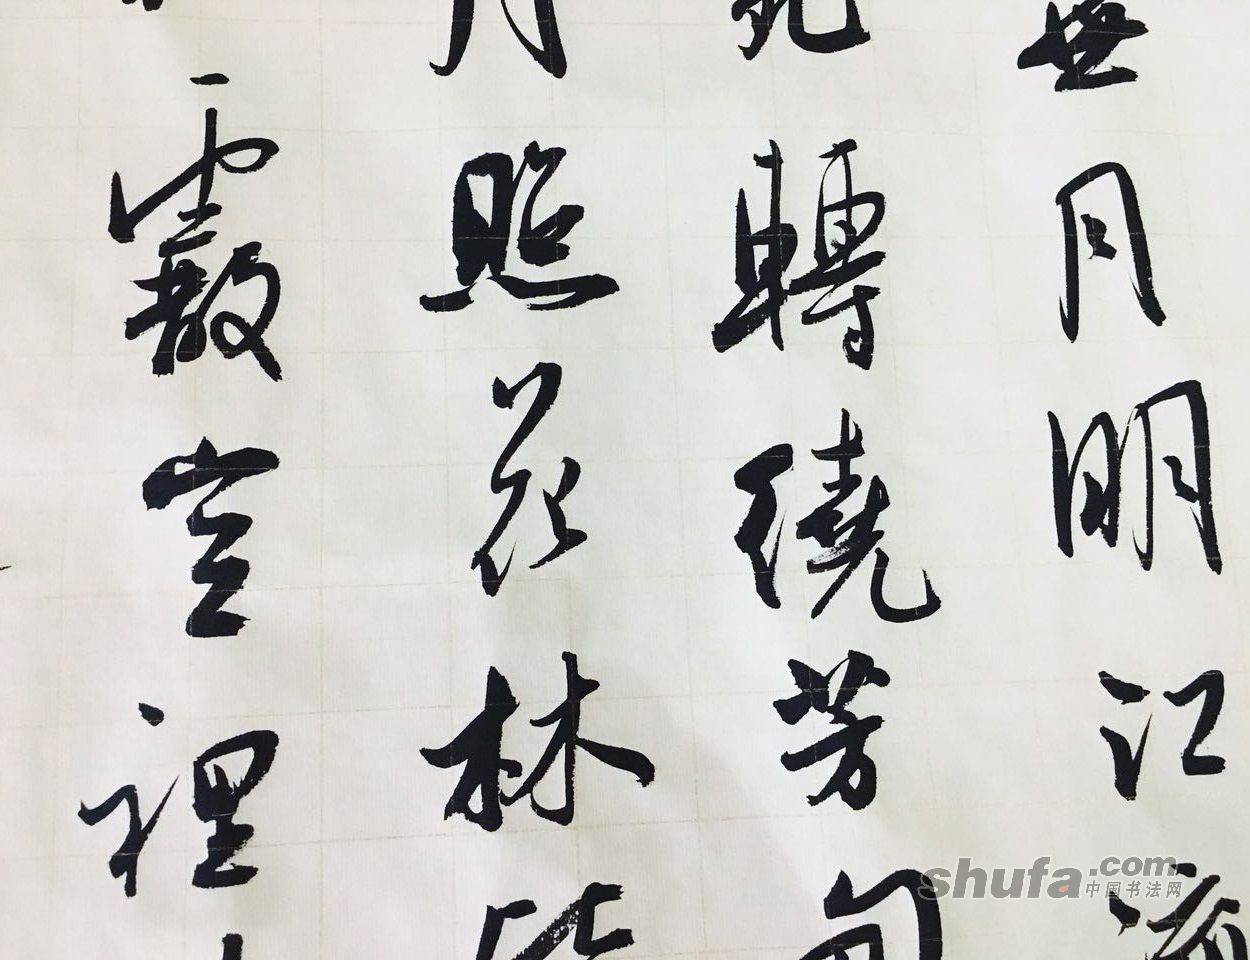 無月明江流
宛轉繞芳甸
月照花林皆
霰空裡
shufa.com
中国书法网